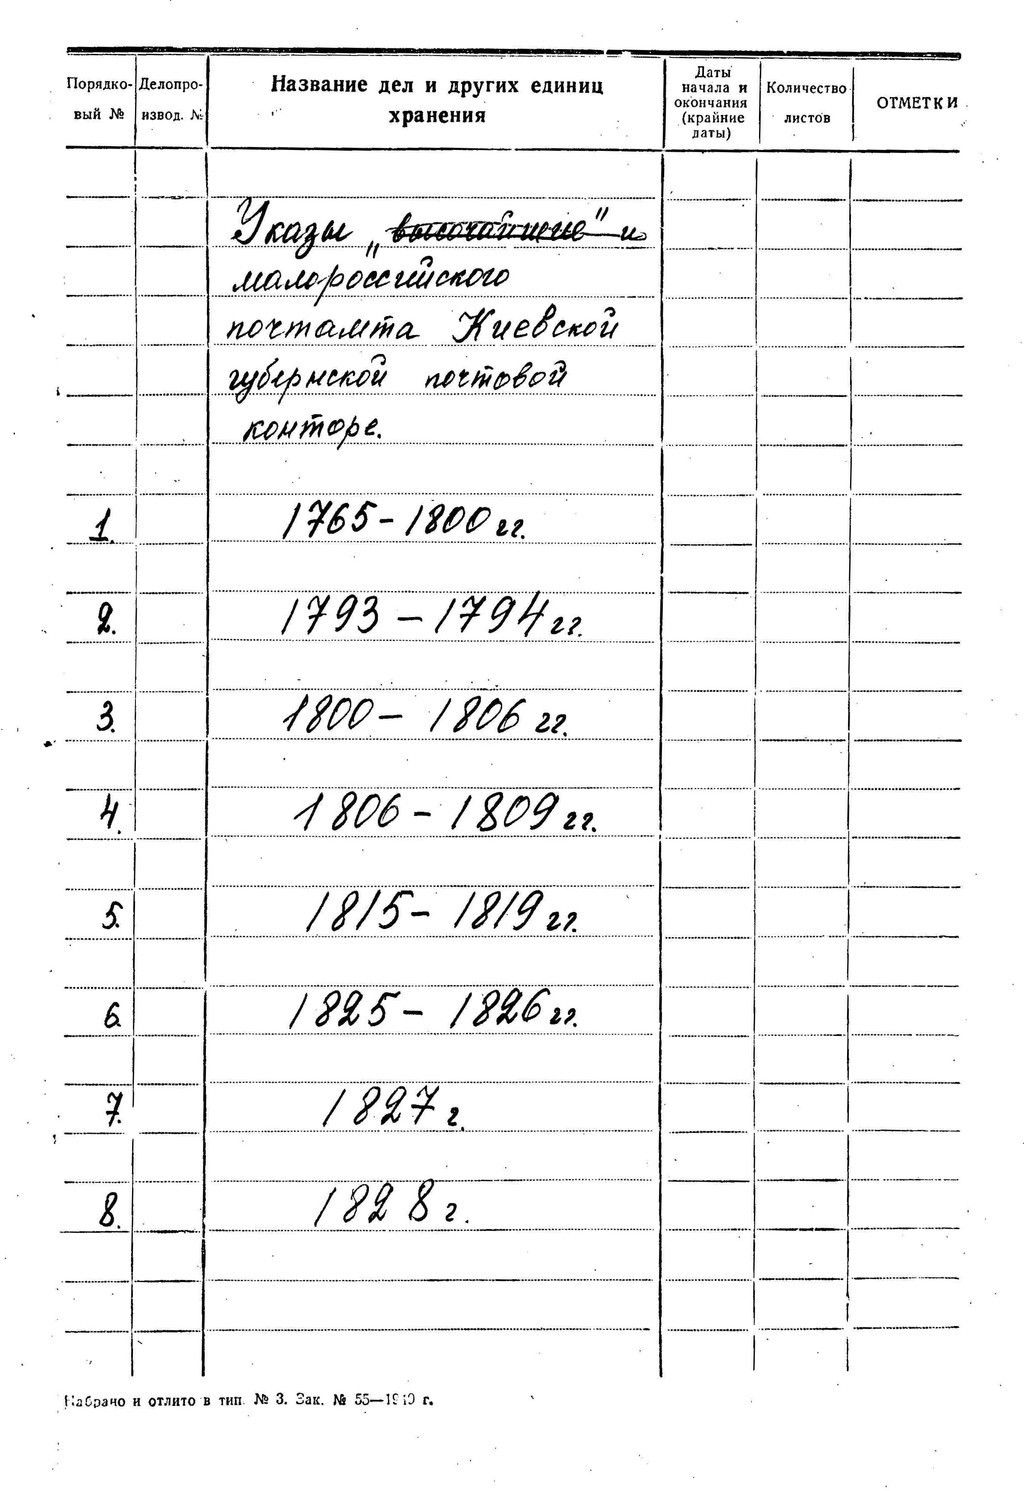 Порядковый № Делопроизвод. № Название дел и других единиц хранения Даты начала и окончания (крайние даты) Количество листов ОТМЕТКИ
Указы „высочайшие" и
малороссийского
почтамта Киевской
губернской почтовой
конторе.
1. 1765-1800 гг.
2. 1793-1794 гг.
3. 1800-1806 гг.
4. 1806-1809 гг.
5. 1815-1819 гг.
6. 1825-1826 гг.
7. 1827 г.
8. 1828 г.
Набрано и отлито в тип. № 3. Зак. № 55— г.